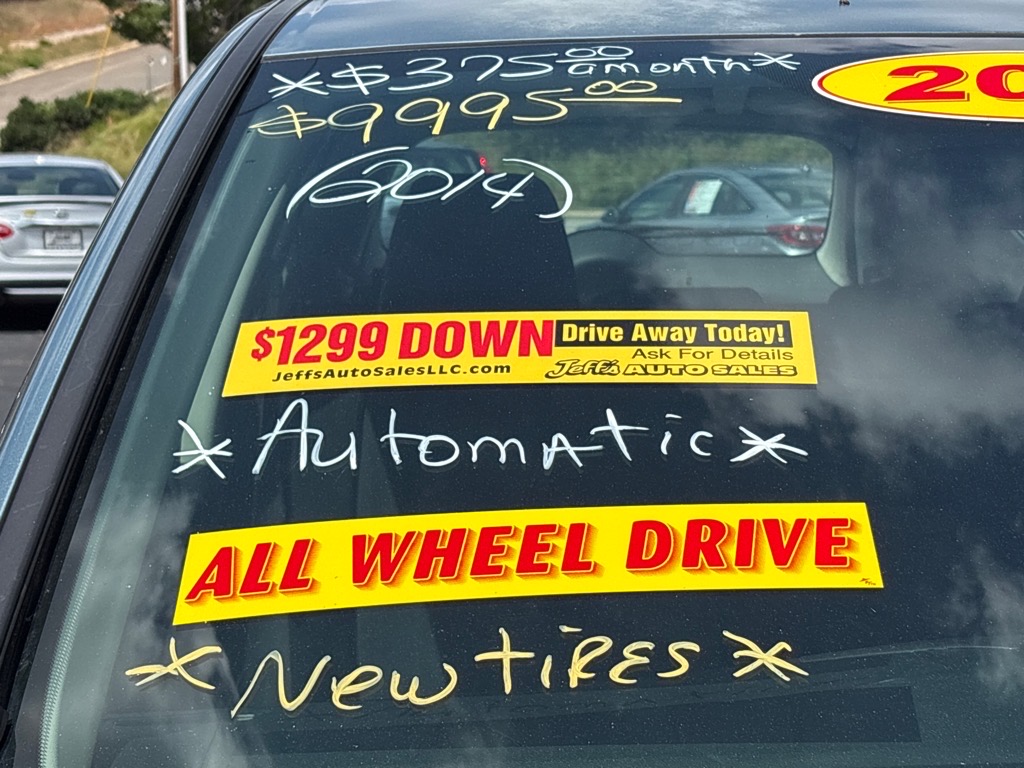 *$375.00 a month*
20
$9995.00
(2014)
$1299 DOWN Drive Away Today!
Ask For Details
JeffsAutoSalesLLC.com Jeff's AUTO SALES
*Automatic*
ALL WHEEL DRIVE
*New tiRES*